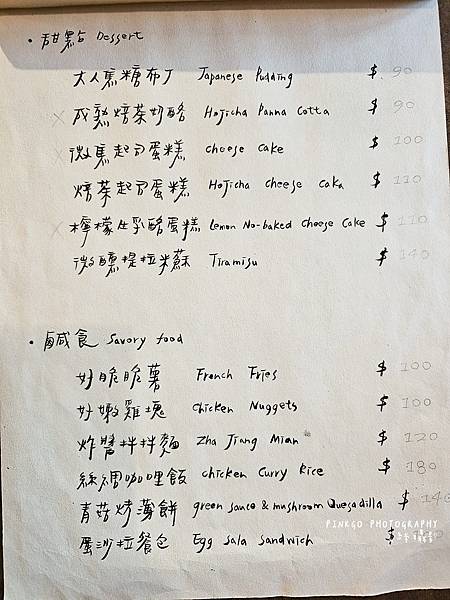 • 甜點 Dessert
大人焦糖布丁 Japanese Pudding $ 90
× 成熟焙茶奶酪 Hojicha Panna Cotta $ 90
× 微焦起司蛋糕 cheese cake $ 100
焙茶起司蛋糕 Hojicha cheese caka $ 110
× 檸檬生乳酪蛋糕 Lemon No-baked Cheese Cake $ 110
微釀提拉米蘇 Tiramisu $ 140
• 鹹食 Savory food
好脆脆薯 French Fries $ 100
好嫩雞塊 Chicken Nuggets $ 100
炸醬拌拌麵 Zha Jiang Mian $ 120
絲綢咖哩飯 chicken Curry Rice $ 180
青菇烤薄餅 green sauce & mushroom Quesadilla $ 140
蛋沙拉餐包 Egg Sala Sandwich $
PINKGO PHOTOGRAPHY